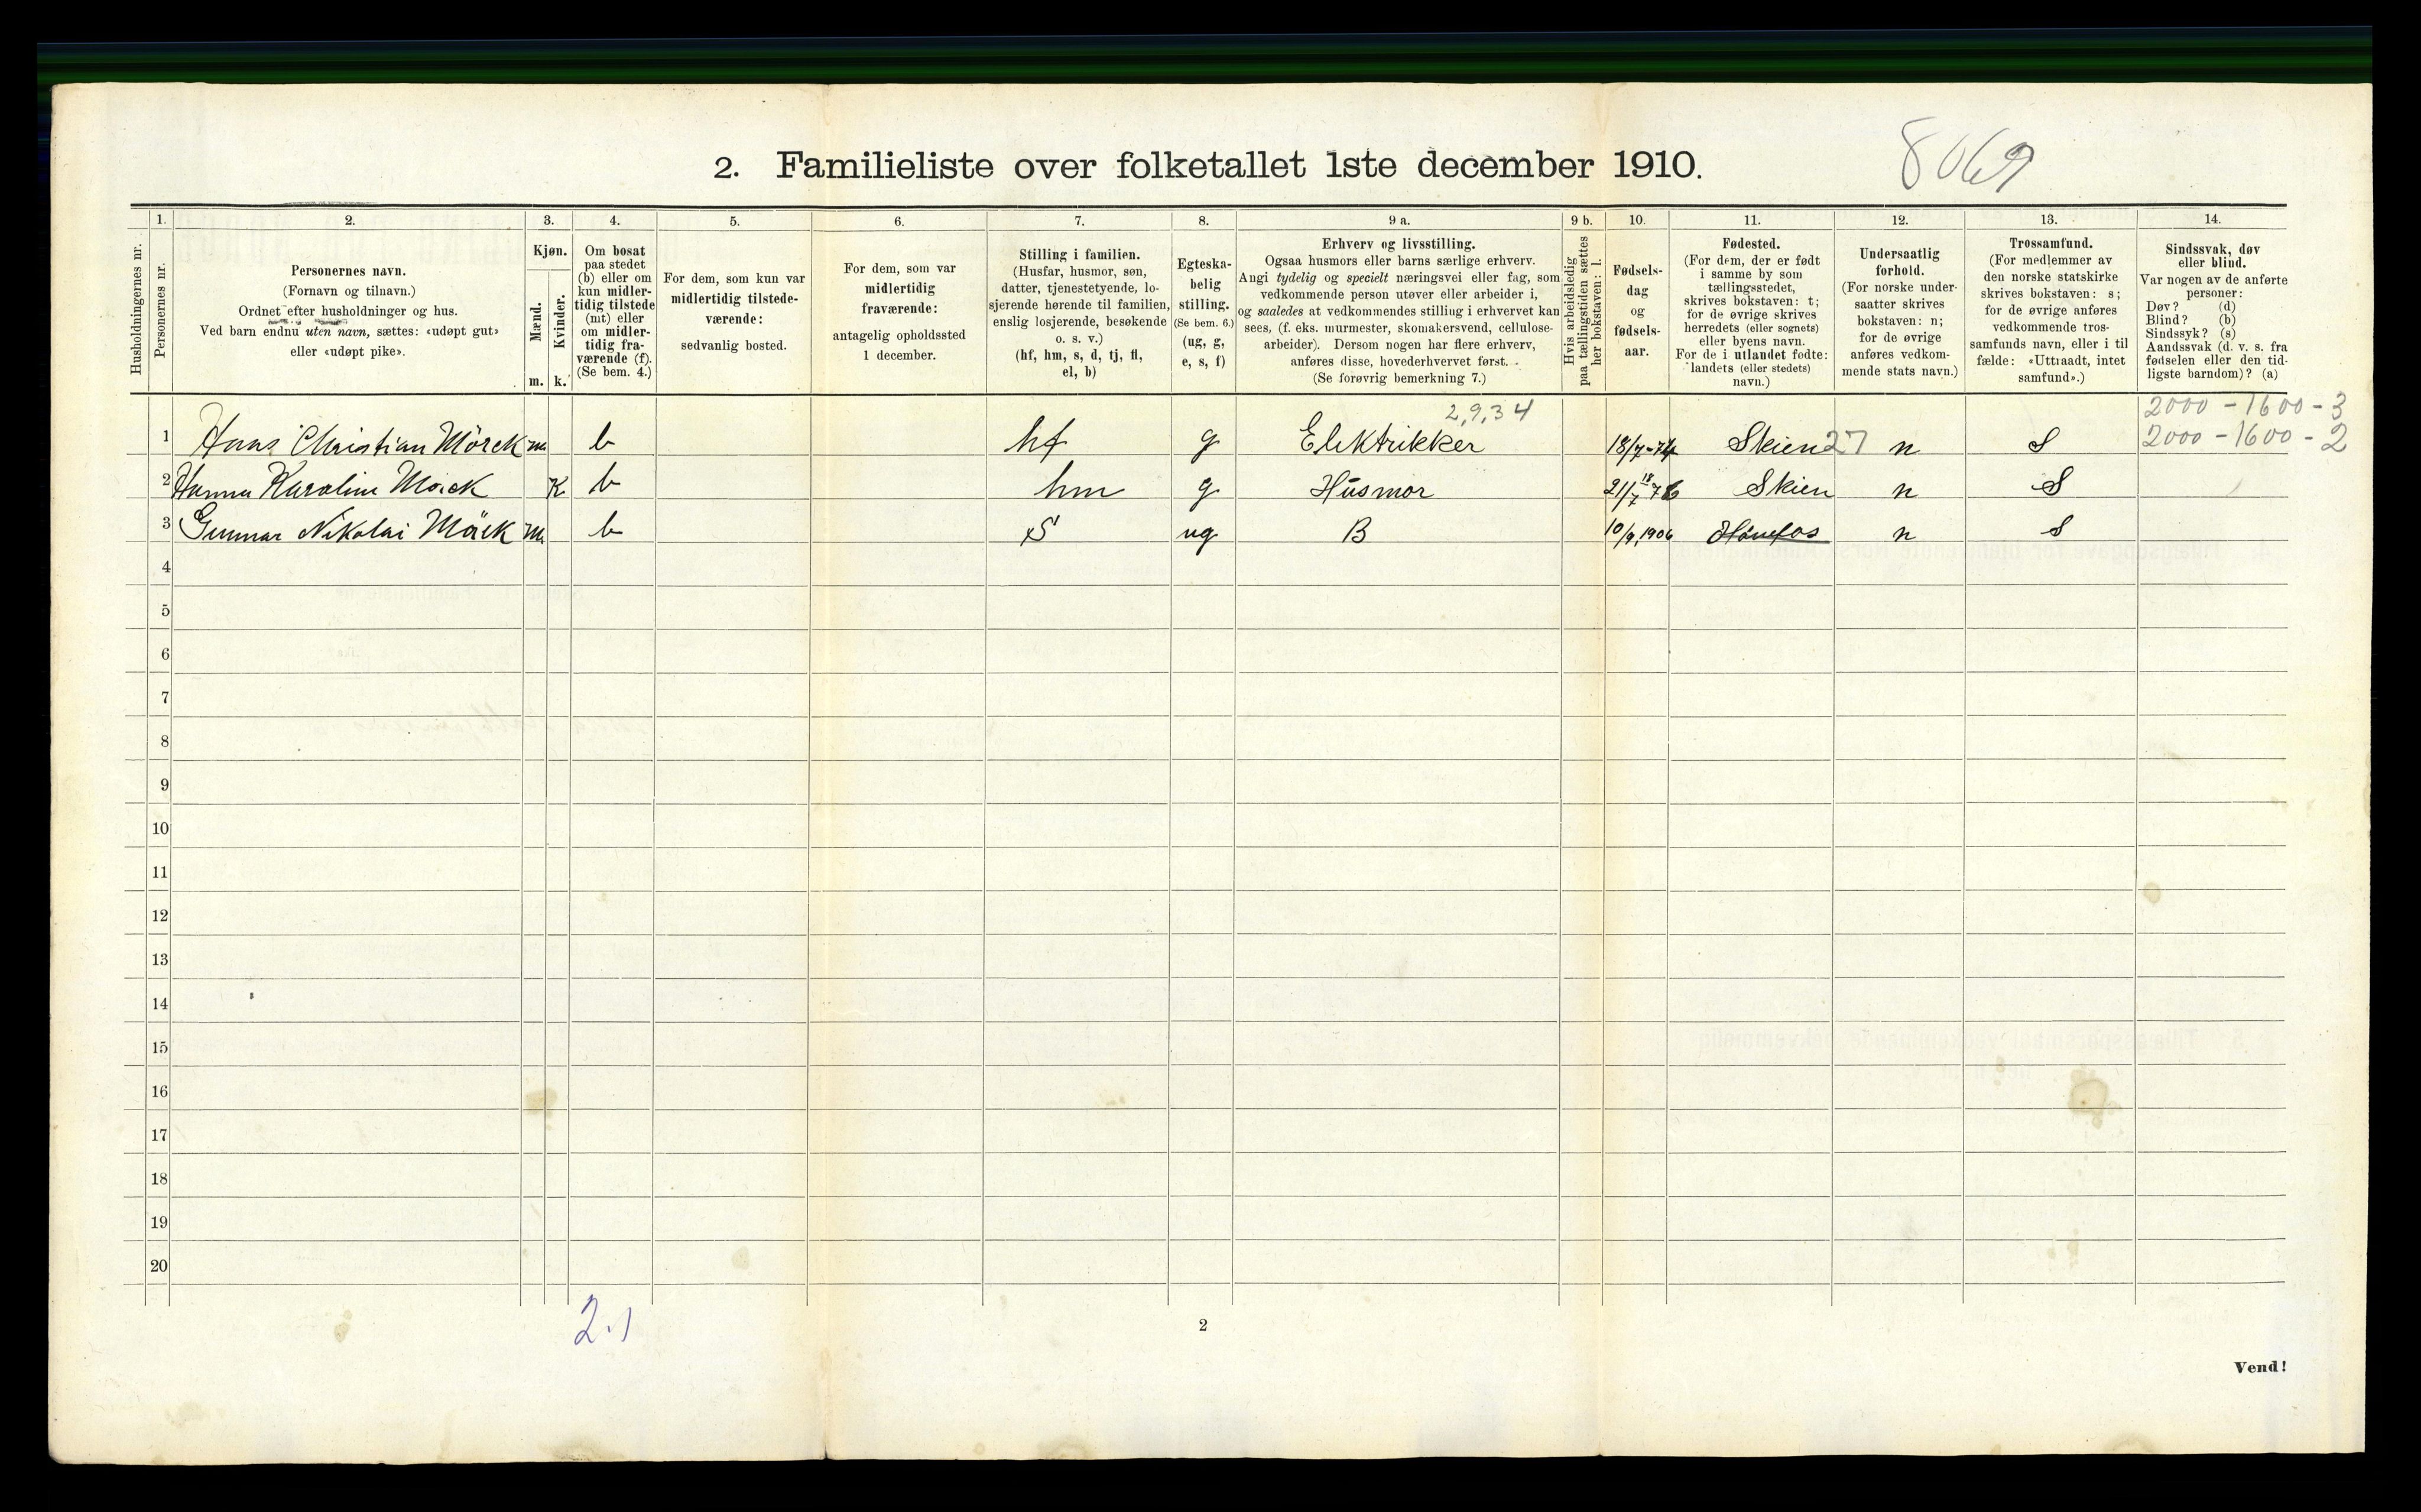 2. Familieliste over folketallet 1ste december 1910.
8069
1. 2. 3. 4. 5. 6. 7. 8. 9 a. 9 b. 10. 11. 12. 13. 14.
Husholdningernes nr.
Personernes nr.
Personernes navn.
(Fornavn og tilnavn.)
Ordnet efter husholdninger og hus.
Ved barn endnu uten navn, sættes: «udøpt gut»
eller «udøpt pike».
Kjøn.
Mænd.
Kvinder.
m. k.
Om bosat
paa stedet
(b) eller om
kun midler-
tidig tilstede
(mt) eller
om midler-
tidig fra-
værende (f).
(Se bem. 4.)
For dem, som kun var
midlertidig tilstede-
værende:
sedvanlig bosted.
For dem, som var
midlertidig
fraværende:
antagelig opholdssted
1 december.
Stilling i familien.
(Husfar, husmor, søn,
datter, tjenestetyende, lo-
sjerende hørende til familien,
enslig losjerende, besøkende
o. s. v.)
(hf, hm, s, d, tj, fl,
el, b)
Egteska-
belig
stilling.
(Se bem. 6.)
(ug, g,
e, s, f)
Erhverv og livsstilling.
Ogsaa husmors eller barns særlige erhverv.
Angi tydelig og specielt næringsvei eller fag, som
vedkommende person utøver eller arbeider i,
og saaledes at vedkommendes stilling i erhvervet kan
sees, (f. eks. murmester, skomakersvend, cellulose-
arbeider). Dersom nogen har flere erhverv,
anføres disse, hovederhvervet først.
(Se forøvrig bemerkning 7.)
Hvis arbeidsledig
paa tællingstiden sættes
her bokstaven: l.
Fødsels-
dag
og
fødsels-
aar.
Fødested.
(For dem, der er født
i samme by som
tællingsstedet,
skrives bokstaven: t;
for de øvrige skrives
herredets (eller sognets)
eller byens navn.
For de i utlandet fødte:
landets (eller stedets)
navn.)
Undersaatlig
forhold.
(For norske under-
saatter skrives
bokstaven: n;
for de øvrige
anføres vedkom-
mende stats navn.)
Trossamfund.
(For medlemmer av
den norske statskirke
skrives bokstaven: s;
for de øvrige anføres
vedkommende tros-
samfunds navn, eller i til
fælde: «Uttraadt, intet
samfund».)
Sindssvak, døv
eller blind.
Var nogen av de anførte
personer:
Døv? (d)
Blind? (b)
Sindssyk? (s)
Aandssvak (d. v. s. fra
fødselen eller den tid-
ligste barndom)? (a)
2,9,34
2000 - 1600 - 3
1 Hans Christian Mörck m b hf g Elektrikker 18/7-74 Skien 27 n S 2000 - 1600 - 2
2 Hanna Karoline Mörck K b hm g Husmor 21/7 1876 Skien n S
3 Gunnar Nikolai Mörck m b S ug B 10/9 1906 Hönefos n S
4
5
6
7
8
9
10
11
12
13
14
15
16
17
18
19
20
2.1
2
Vend!